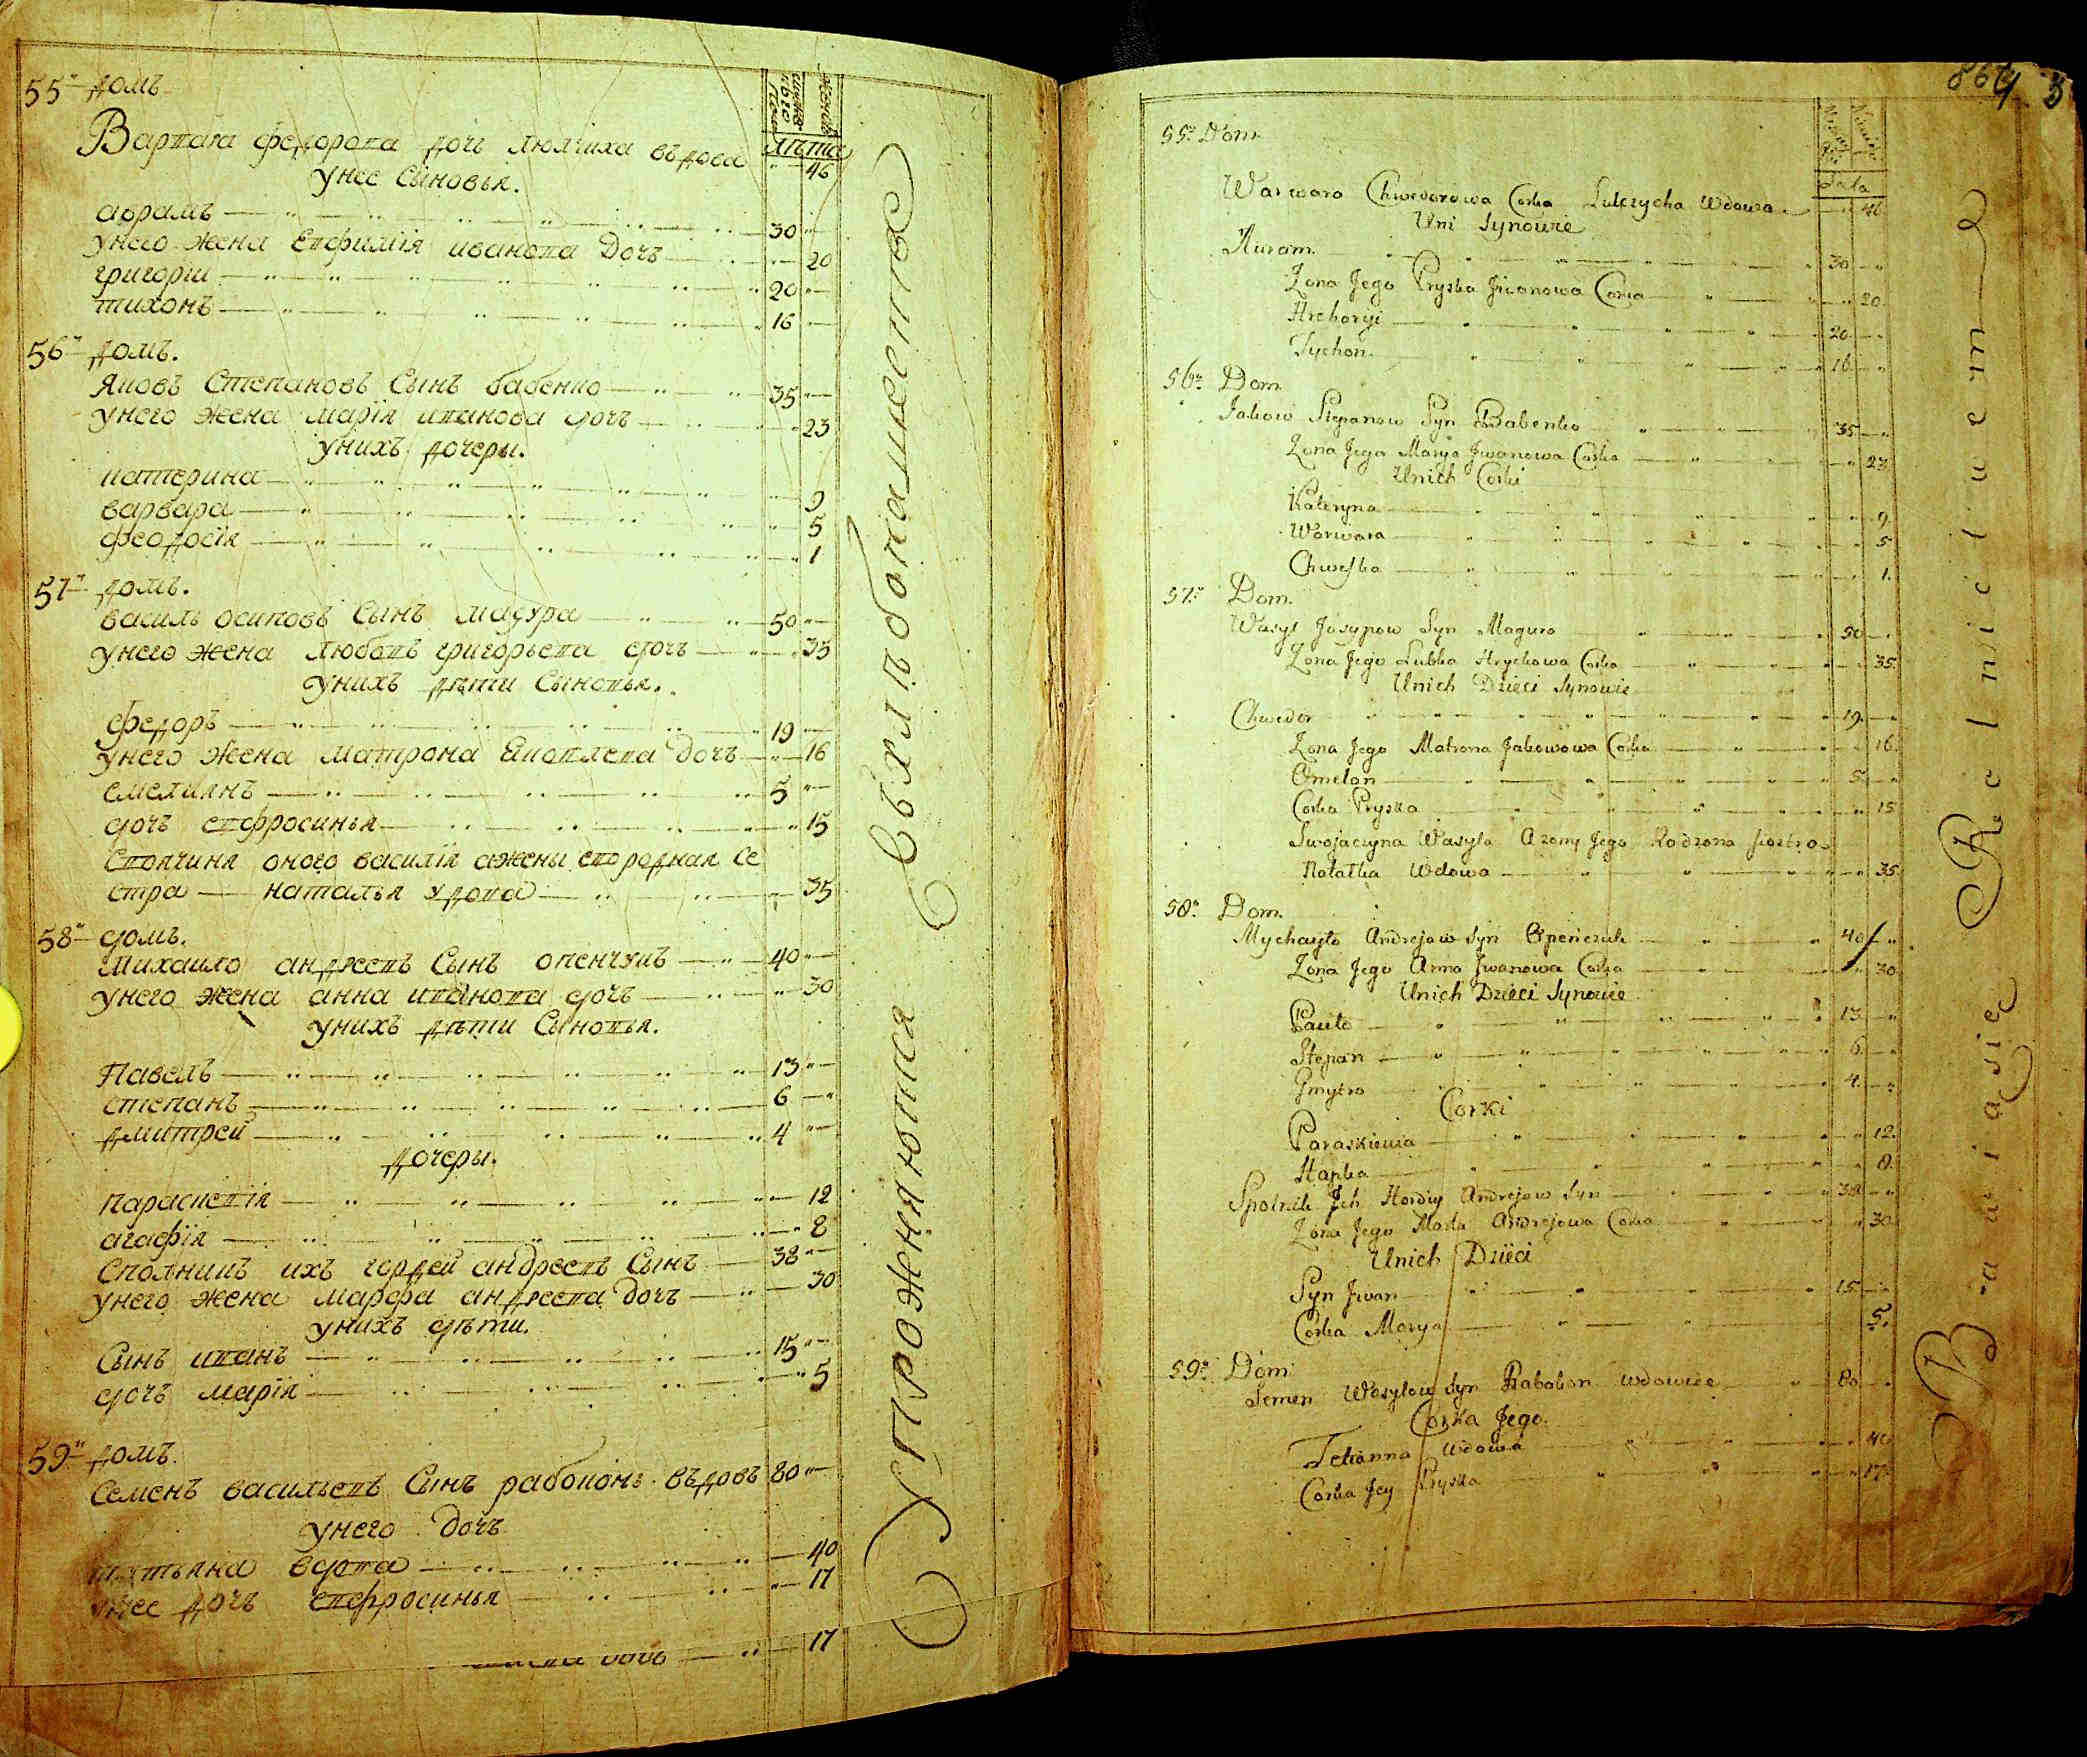 55й домъ
мужеска
женска
лѣта
Варвара федорова дочь люлчиха въдова 46
унее Сыновья.
абрамъ 30
унего жена Евфимїя иванова дочь 20
григории 20
тихонъ 16
56й домъ.
Яковъ Степановъ Сынъ бабенко 35
унего жена марїя иванова дочь 23
унихъ дочеры.
катерина 9
варвара 5
феодосїя 1
57й домъ.
василь осиповъ Сынъ 50
унего жена любовь григорьева дочь 35
унихъ дѣти Сыновья.
федоръ 19
унего жена матрона Яковлева дочь 16
емелиянъ 5
дочь евфросинья 15
Своячиня оного василїя ажены его родная се
стра наталья удова 35
58й домъ.
Михаило андреевъ Сынъ опенчукъ 40
унего жена анна иванова дочь 30
унихъ дѣти Сыновья.
Павелъ 13
степанъ 6
дмитрей 4
дочеры.
параскевїя 12
агафїя 8
Сполникъ ихъ гордей андреевъ Сынъ 38
унего жена марфа андреева дочь 30
унихъ дѣти.
Сынъ иванъ 15
дочь марїя 5
59й домъ.
Семенъ васильевъ Сынъ рабоконь въдовъ 80
унего дочь
татьяна вдова 40
унее дочь евфросинья 17
дочь 17
Упражняются въ хлѣбопашестве
864
55. Dom.
Lata
Warwara Chwedorowa Corka Lulczycha Wdowa 46
Uni Synowie
Auram 30
Zona Jego Pryska Jwanowa Corka 20
Hrehoryi 20
Tychon 16
56. Dom.
Jakow Stepanow Syn Babenko 35
Zona Jego Marya Jwanowa Corka 23
Unich Corki
Kateryna 9
Warwara 5
Chweska 1.
57. Dom.
Wasyl Josypow Syn Magura 50
Zona Jego Lubka Hryckowa Corka 35
Unich Dzieci Synowie
Chwedor 19
Zona Jego Matrona Jakowowa Corka 16
Omelan 5
Corka Pryska 15
Swojaczyna Wasyla A zony Jego Rodzona siostra
Natalka Wdowa 35
58. Dom.
Mychayło Andrejow Syn Openczuk 40
Zona Jego Anna Jwanowa Corka 30
Unich Dzieci Synowie
Pauło 13
Stepan 6
Dmytro 4
Corki
Paraskiewia 12
Hapka 8
Spolnik Jch Hordiy Andrejow Syn 38
Zona Jego Marta Andrejowa Corka 30
Unich Dzieci
Syn Jwan 15
Corka Marya 5.
59. Dom
Semen Wasylow Syn Rabokon wdowiec 80
Corka Jego.
Tetianna Wdowa 40
Corka Jey Pryska 17
Bawiasię Rolnictwem